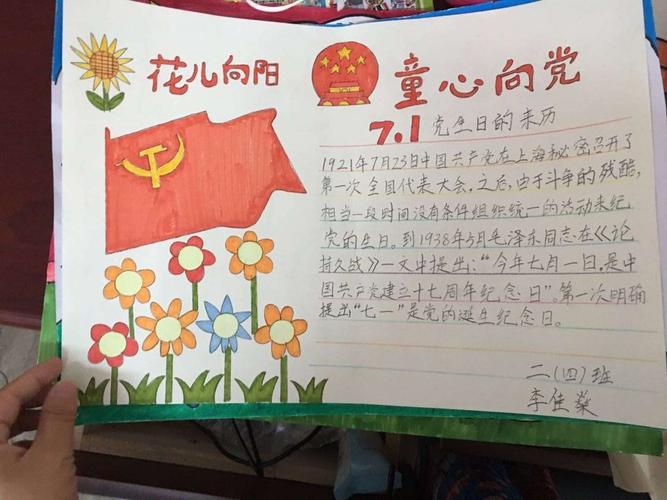 花儿向阳
童心向党
7.1 党生日的来历
1921年7月23日中国共产党在上海秘密召开了
第一次全国代表大会。之后,由于斗争的残酷,
相当一段时间没有条件组织统一的活动来纪
党的生日。到1938年5月毛泽东同志在《论
持久战》一文中提出:“今年七月一日,是中
国共产党建立十七周年纪念日”。第一次明确
提出“七一”是党的诞生纪念日。
二(四)班
李佳燊